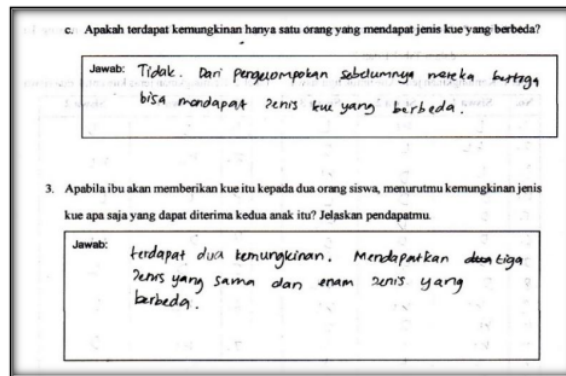 c. Apakah terdapat kemungkinan hanya satu orang yang mendapat jenis kue yang berbeda?
Jawab: Tidak. Dari pengelompokan sebelumnya mereka bertiga
bisa mendapat jenis kue yang berbeda.
3. Apabila ibu akan memberikan kue itu kepada dua orang siswa, menurutmu kemungkinan jenis
kue apa saja yang dapat diterima kedua anak itu? Jelaskan pendapatmu.
Jawab: terdapat dua kemungkinan. Mendapatkan tiga
jenis yang sama dan enam jenis yang
berbeda.